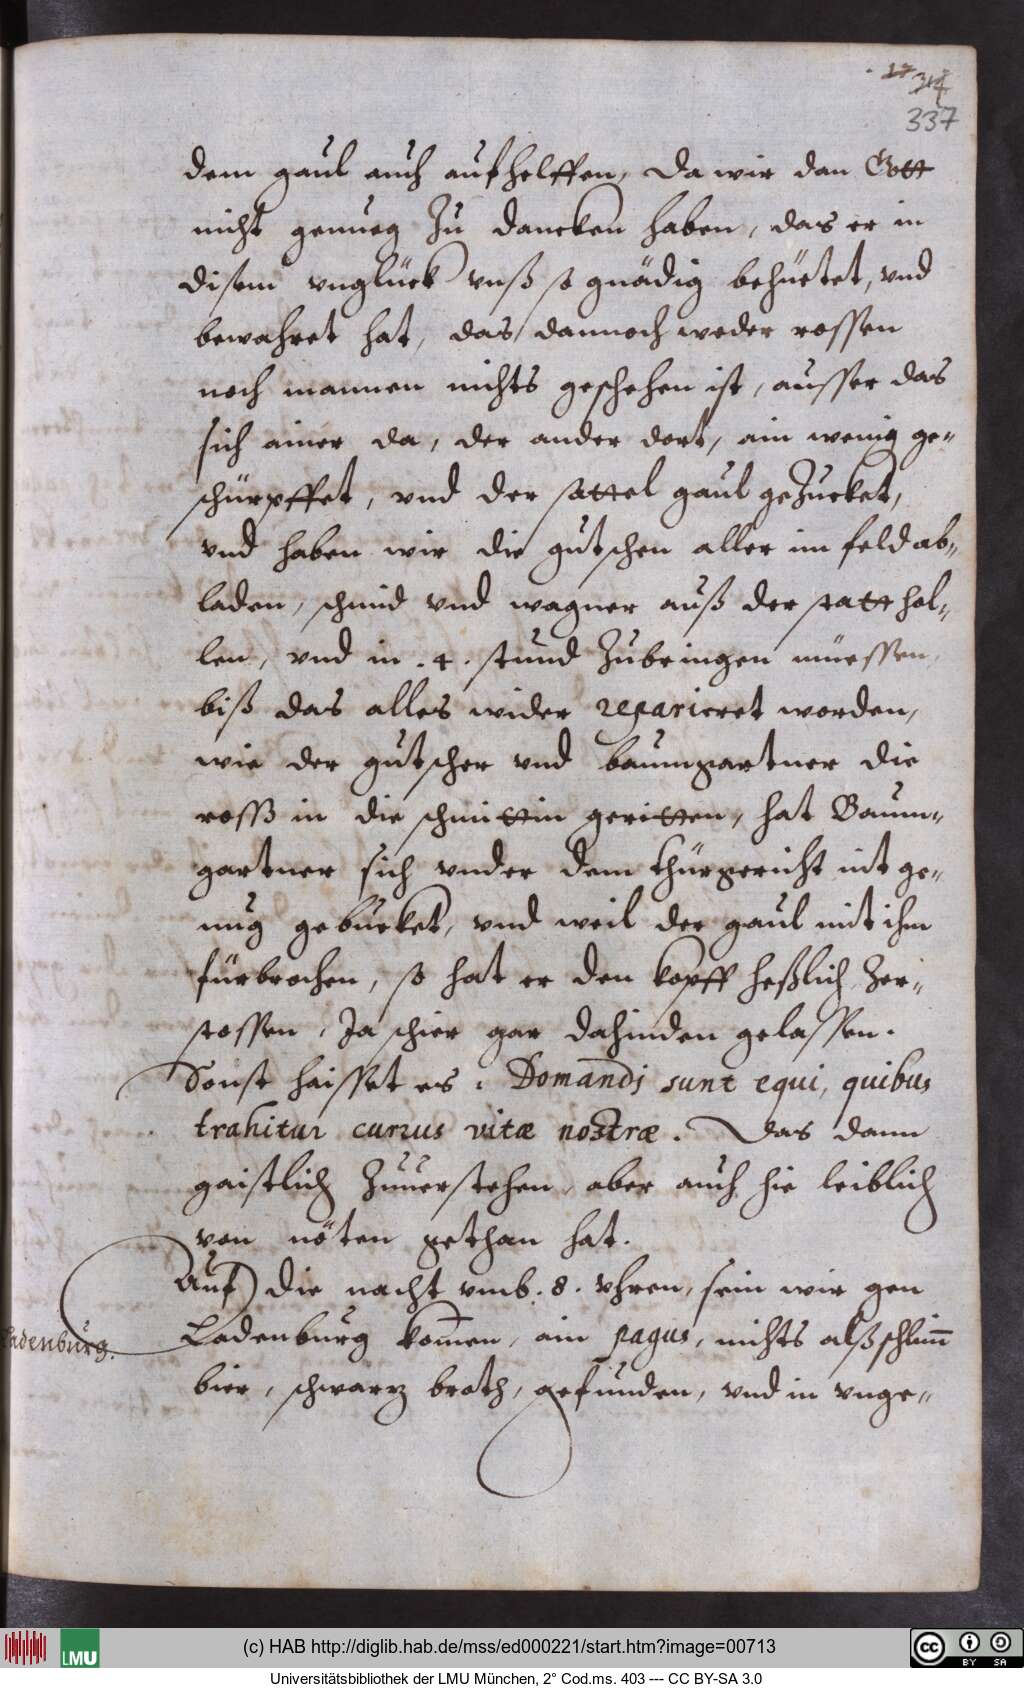 337
dem gaul auch aufhelffen, da wir dan Gott
nicht genueg zu dancken haben, das er in
disem vnglück vnß so gnädig behüetet, vnd
bewahret hat, das dannoch weder rossen
noch mannen nichts geschehen ist, ausser das
sich ainer da, der ander dort, ain wenig ge-
schürpffet, vnd der sattel gaul gezucket,
vnd haben wir die gutschen aller im feld ab-
laden, schmid vnd wagner auß der statt hol-
len, vnd in .4. stund zubringen müessen,
biß das alles wider reparieret worden,
wie der gutscher vnd baumgartner die
rosß in die schmittin geritten, hat Baum-
gartner sich vnder dem thürgericht nit ge-
nug gebucket, vnd weil der gaul mit ihm
fürbrochen, so hat er den kopff heßlich zer-
stossen, Ja schier gar dahinden gelassen.
Sonst haisset es: Domandj sunt equi, quibus
trahitur currus vitæ nostræ. Das dann
gaistlich zuuerstehen, aber auch hie leiblich
von nöten gethan hat.
Auf die nacht vmb .8. vhren, sein wir gen
Ladenburg.
Ladenburg kom̄en, ain pagus, nichts alß schlim̄
bier, schwarz broth, gefunden, vnd in vnge-
(c) HAB http://diglib.hab.de/mss/ed000221/start.htm?image=00713
LMU
cc BY SA
Universitätsbibliothek der LMU München, 2° Cod.ms. 403 --- CC BY-SA 3.0